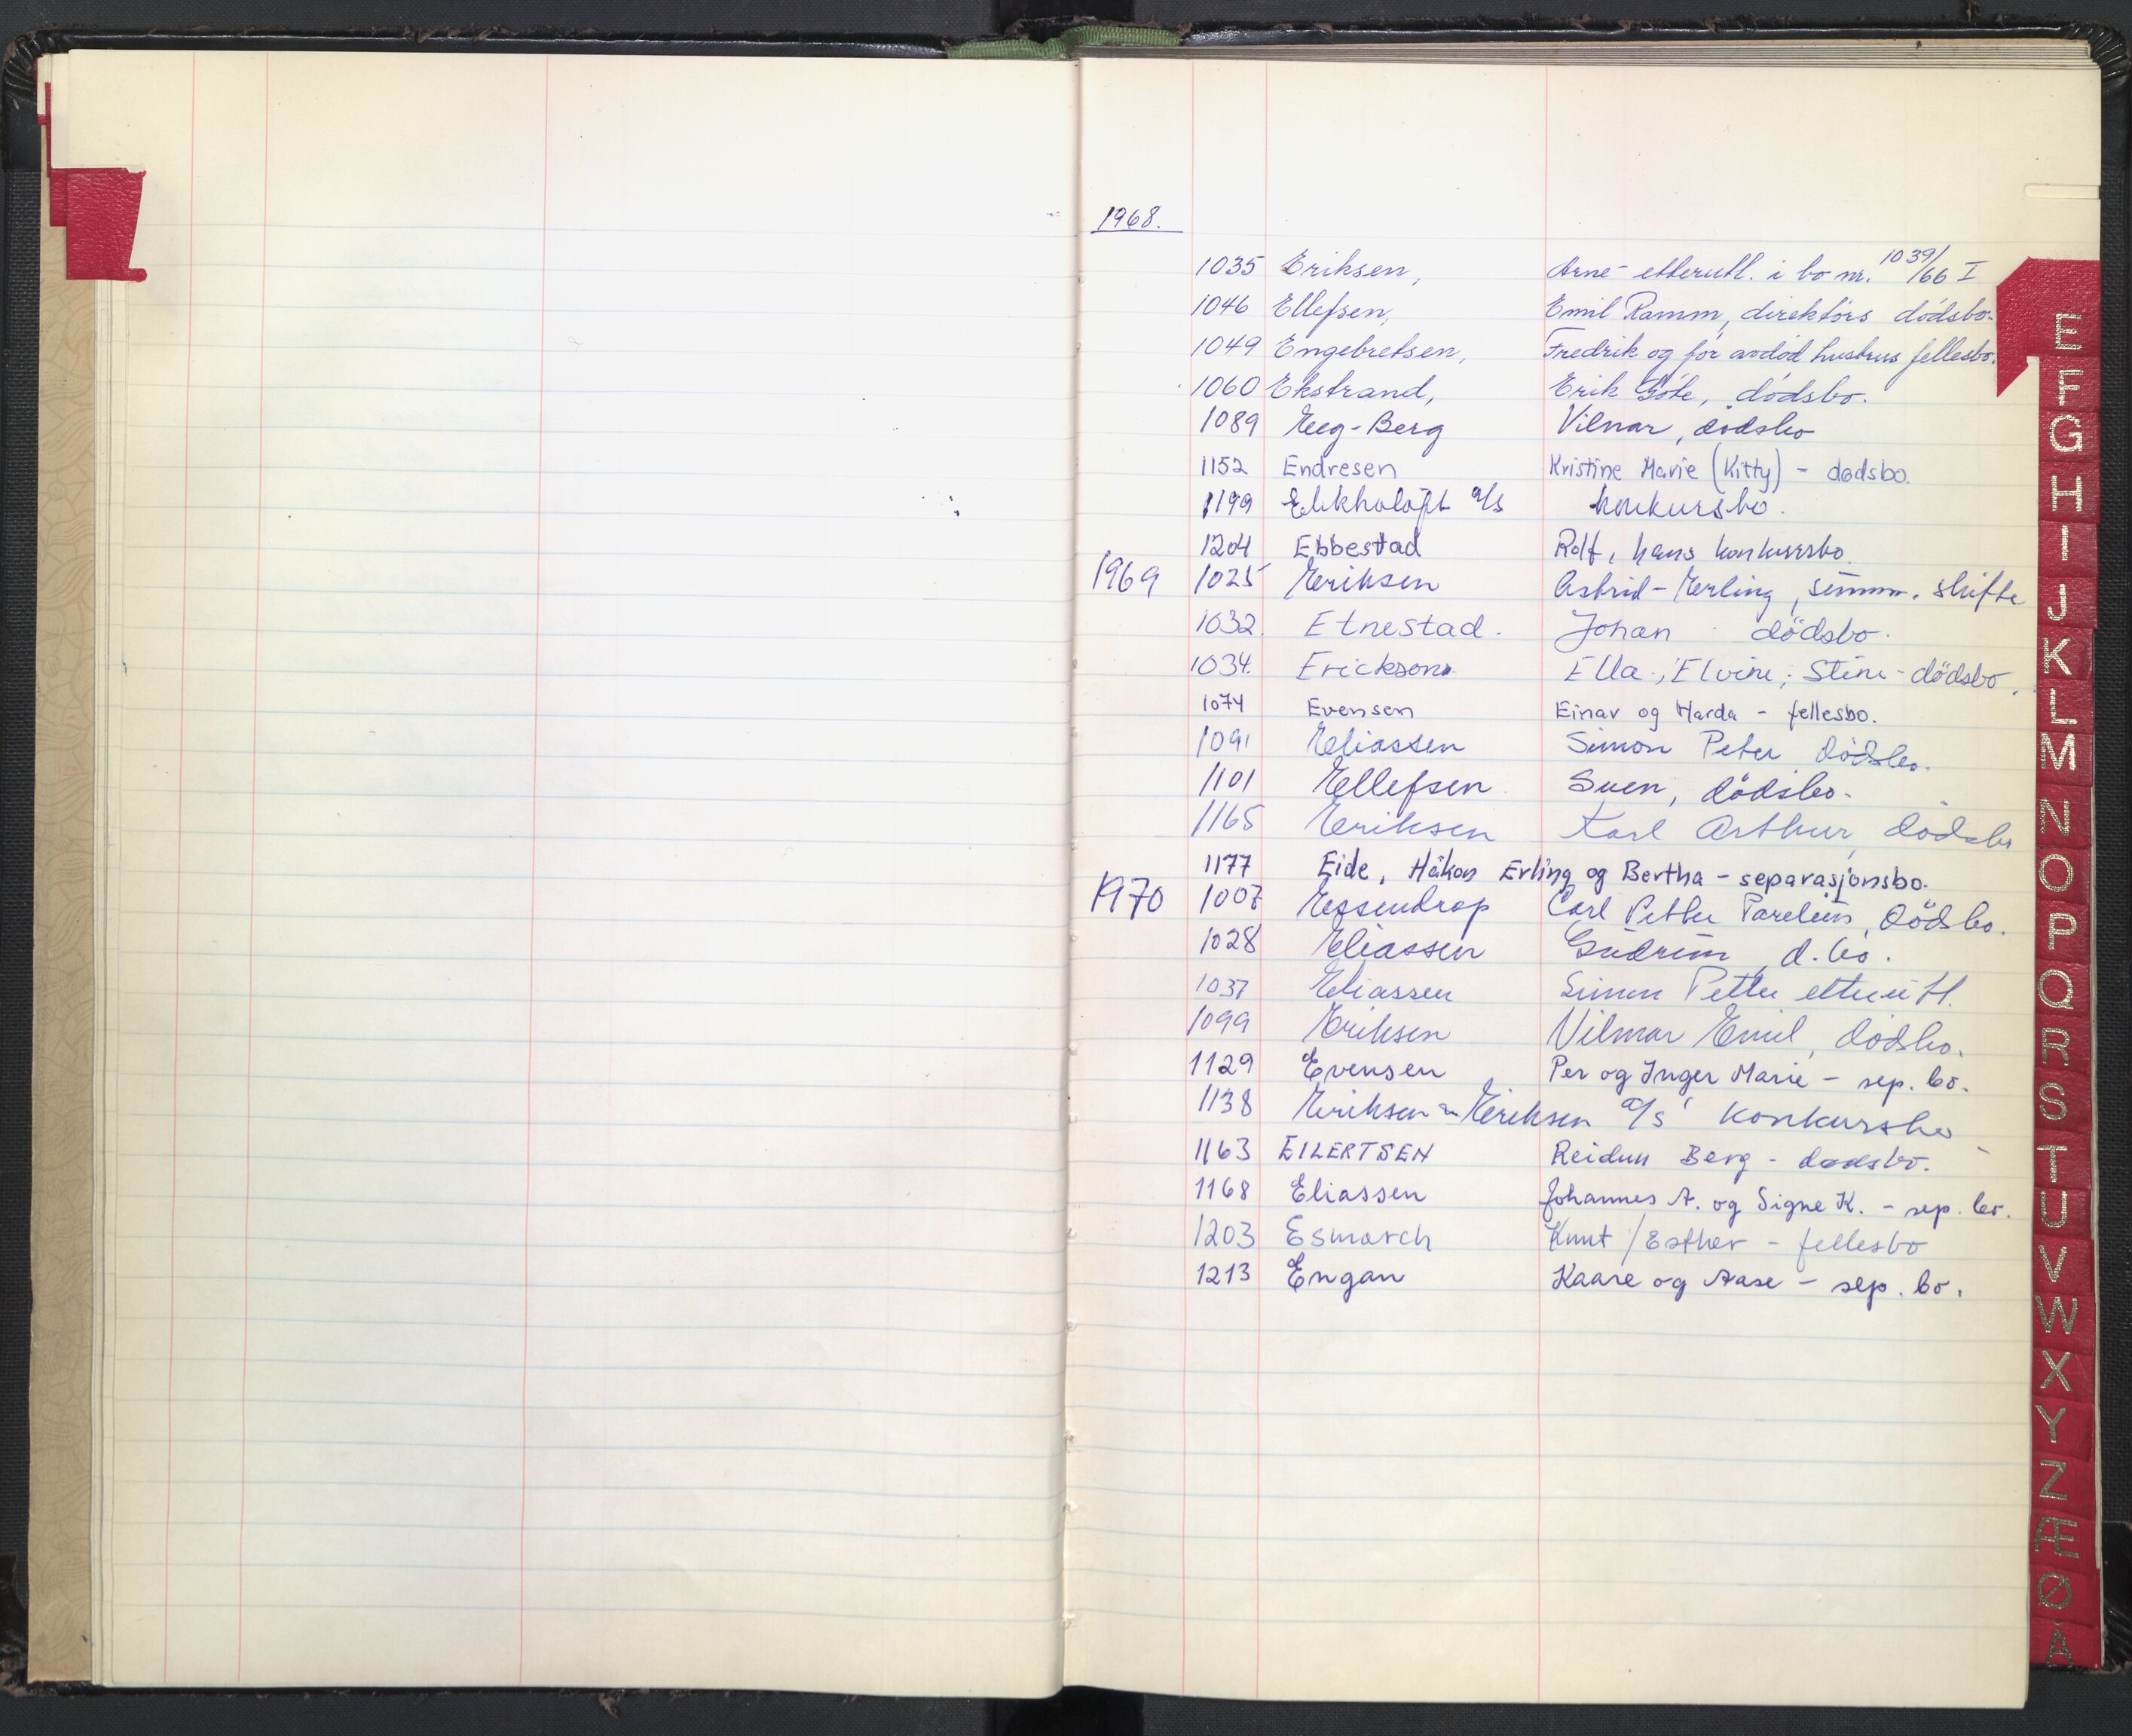 1968.
1035 Eriksen, Arne - etterutl. i bo nr. 1039/66 I
1046 Ellefsen, Emil Ramm, direktörs dödsbo.
1049 Engebretsen, Fredrik og för avdöd hustrus fellesbo.
1060 Ekstrand, Erik Göte, dödsbo.
1089 Eeg-Berg Vilnar, dödsbo
1152 Endresen Kristine Marie (Kitty) - dødsbo.
1199 a/s konkursbo.
1204 Ebbestad Rolf, hans konkursbo
1969 1025 Eriksen Astrid - Erling, summ. skifte
1032. Etnestad. Johan dödsbo.
1034. Erickson. Ella, Elvine, Stine - dödsbo.
1074 Evensen Einar og Harda - fellesbo.
1091 Eliassen Simon Peter dödsbo.
1101 Ellefsen Sven, dödsbo.
1165 Eriksen Karl Arthur, dödsbo
1177 Eide, Håkon Erling og Bertha - separasjonsbo.
1970 1007 Essendrop Carl Petter Parelius, dödsbo.
1028 Eliassen Gudrun, d.bo.
1037 Eliassen Simon Petter etterutl.
1099 Eriksen Vilmar Emil, dödsbo.
1129 Evensen Per og Inger Marie - sep. bo.
1138 Eriksen & Eriksen a/s konkursbo
1163 EILERTSEN Reidun Berg - dødsbo.
1168 Eliassen Johannes A. og Signe K. - sep. bo.
1203 Esmarch Knut / Esther - fellesbo
1213 Engan Kaare og Aase - sep. bo.
E
F
G
H
I
J
K
L
M
N
O
P
Q
R
S
T
U
V
W
X
Y
Z
Æ
Ø
Å